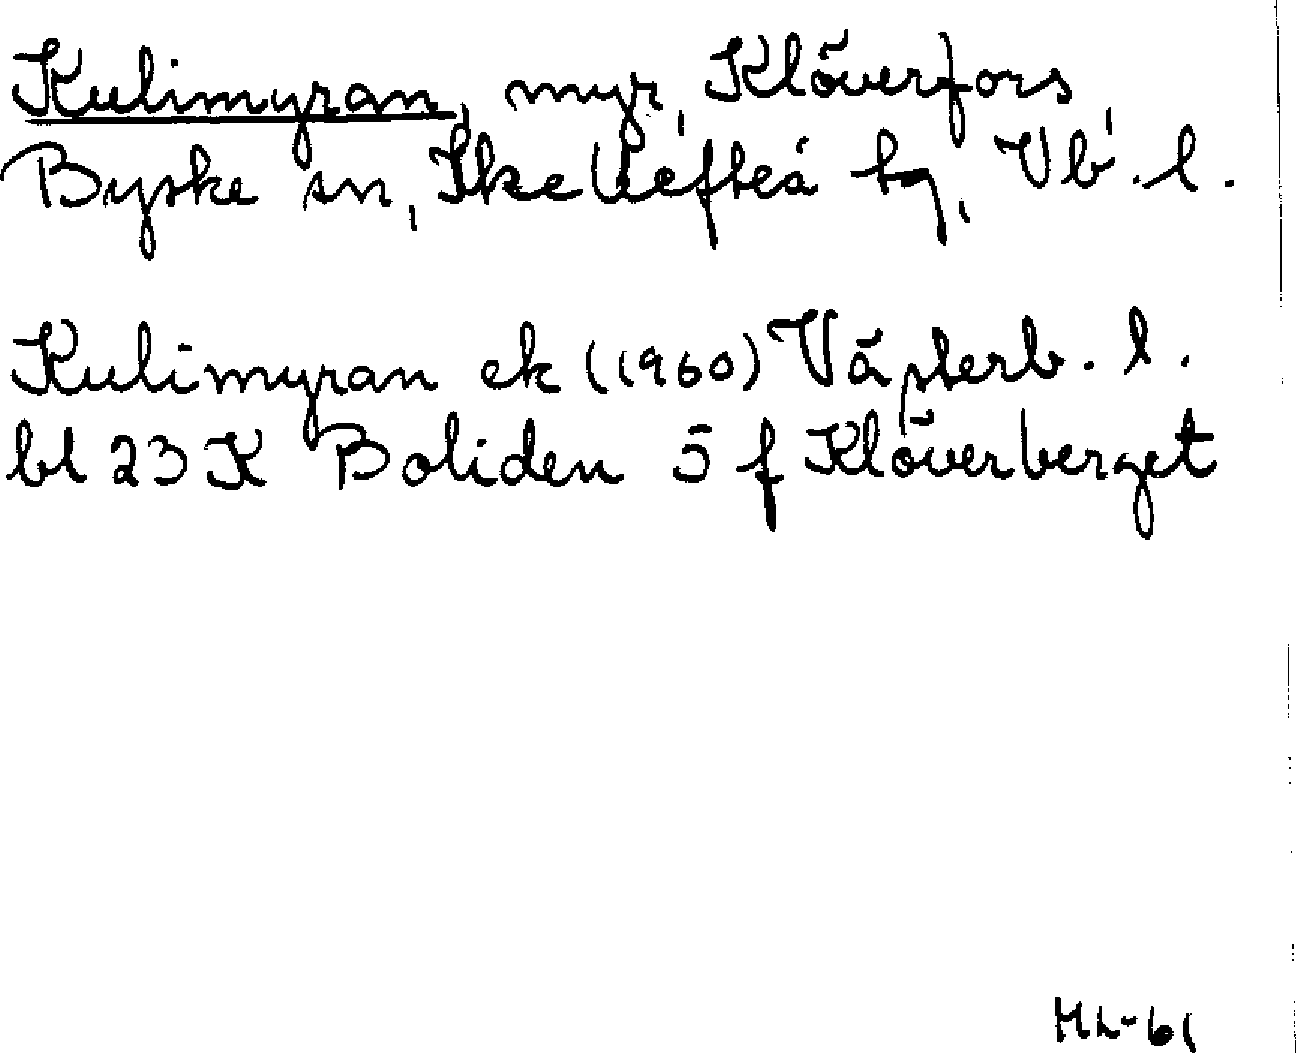 Kulimyran, myr, Klöverfors,
Byske sn, Skellefteå tg, Vb. l.
Kulimyran ek (1960) Västerb. l.
bl 23 K Boliden 5 f Klöverberget
HL-61